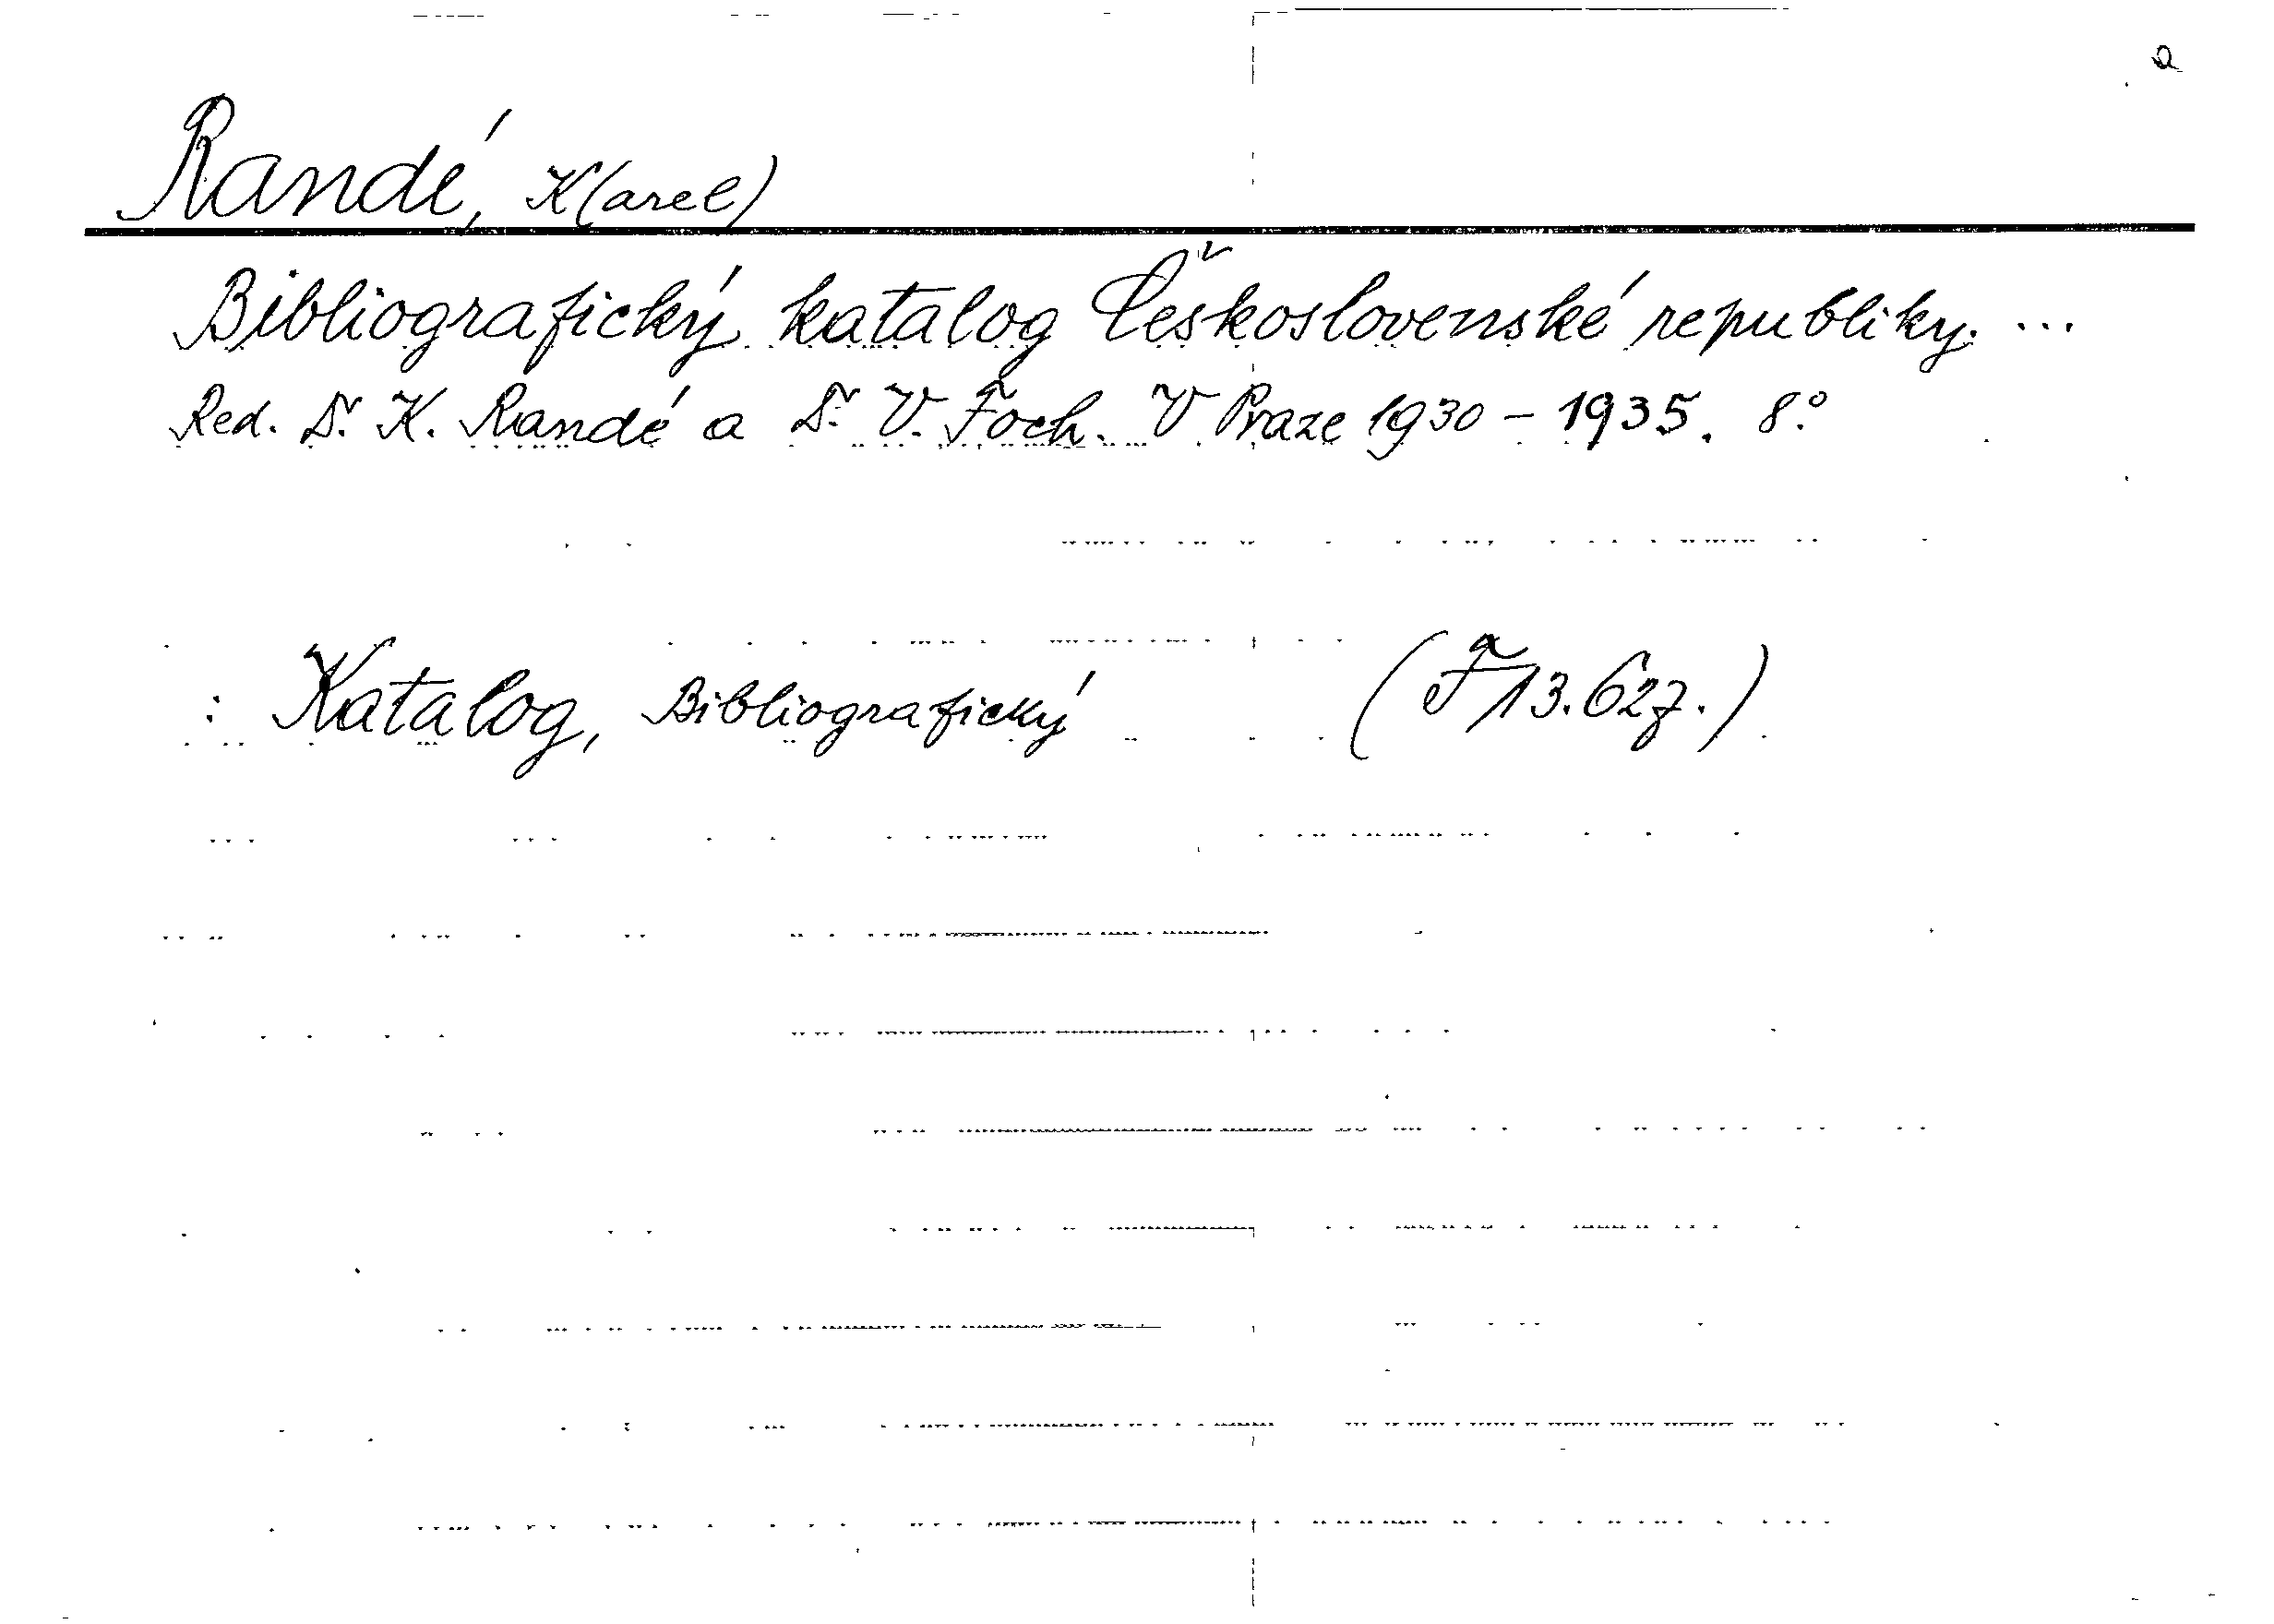 Randé, K(arel)
Bibliografický katalog Československé republiky. ...
Red. Dr. K. Randé a Dr. V. Foch. V Praze 1930 - 1935. 8.°
: Katalog, Bibliografický (F 13.627.)